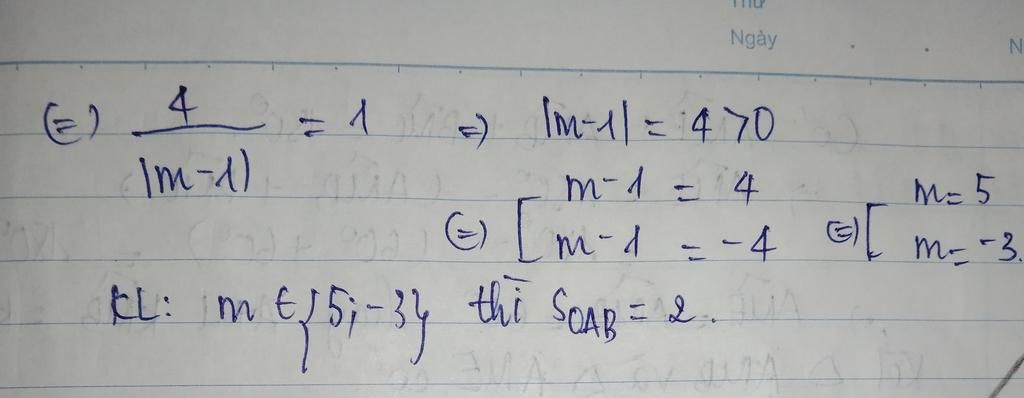 Thứ
Ngày
N
(=) 4/|m-1| = 1 =) |m-1| = 4 > 0
(=) [ m-1 = 4 (=) [ m = 5
m-1 = -4 m = -3.
KL: m ∈ {5; -3} thì S_OAB = 2.